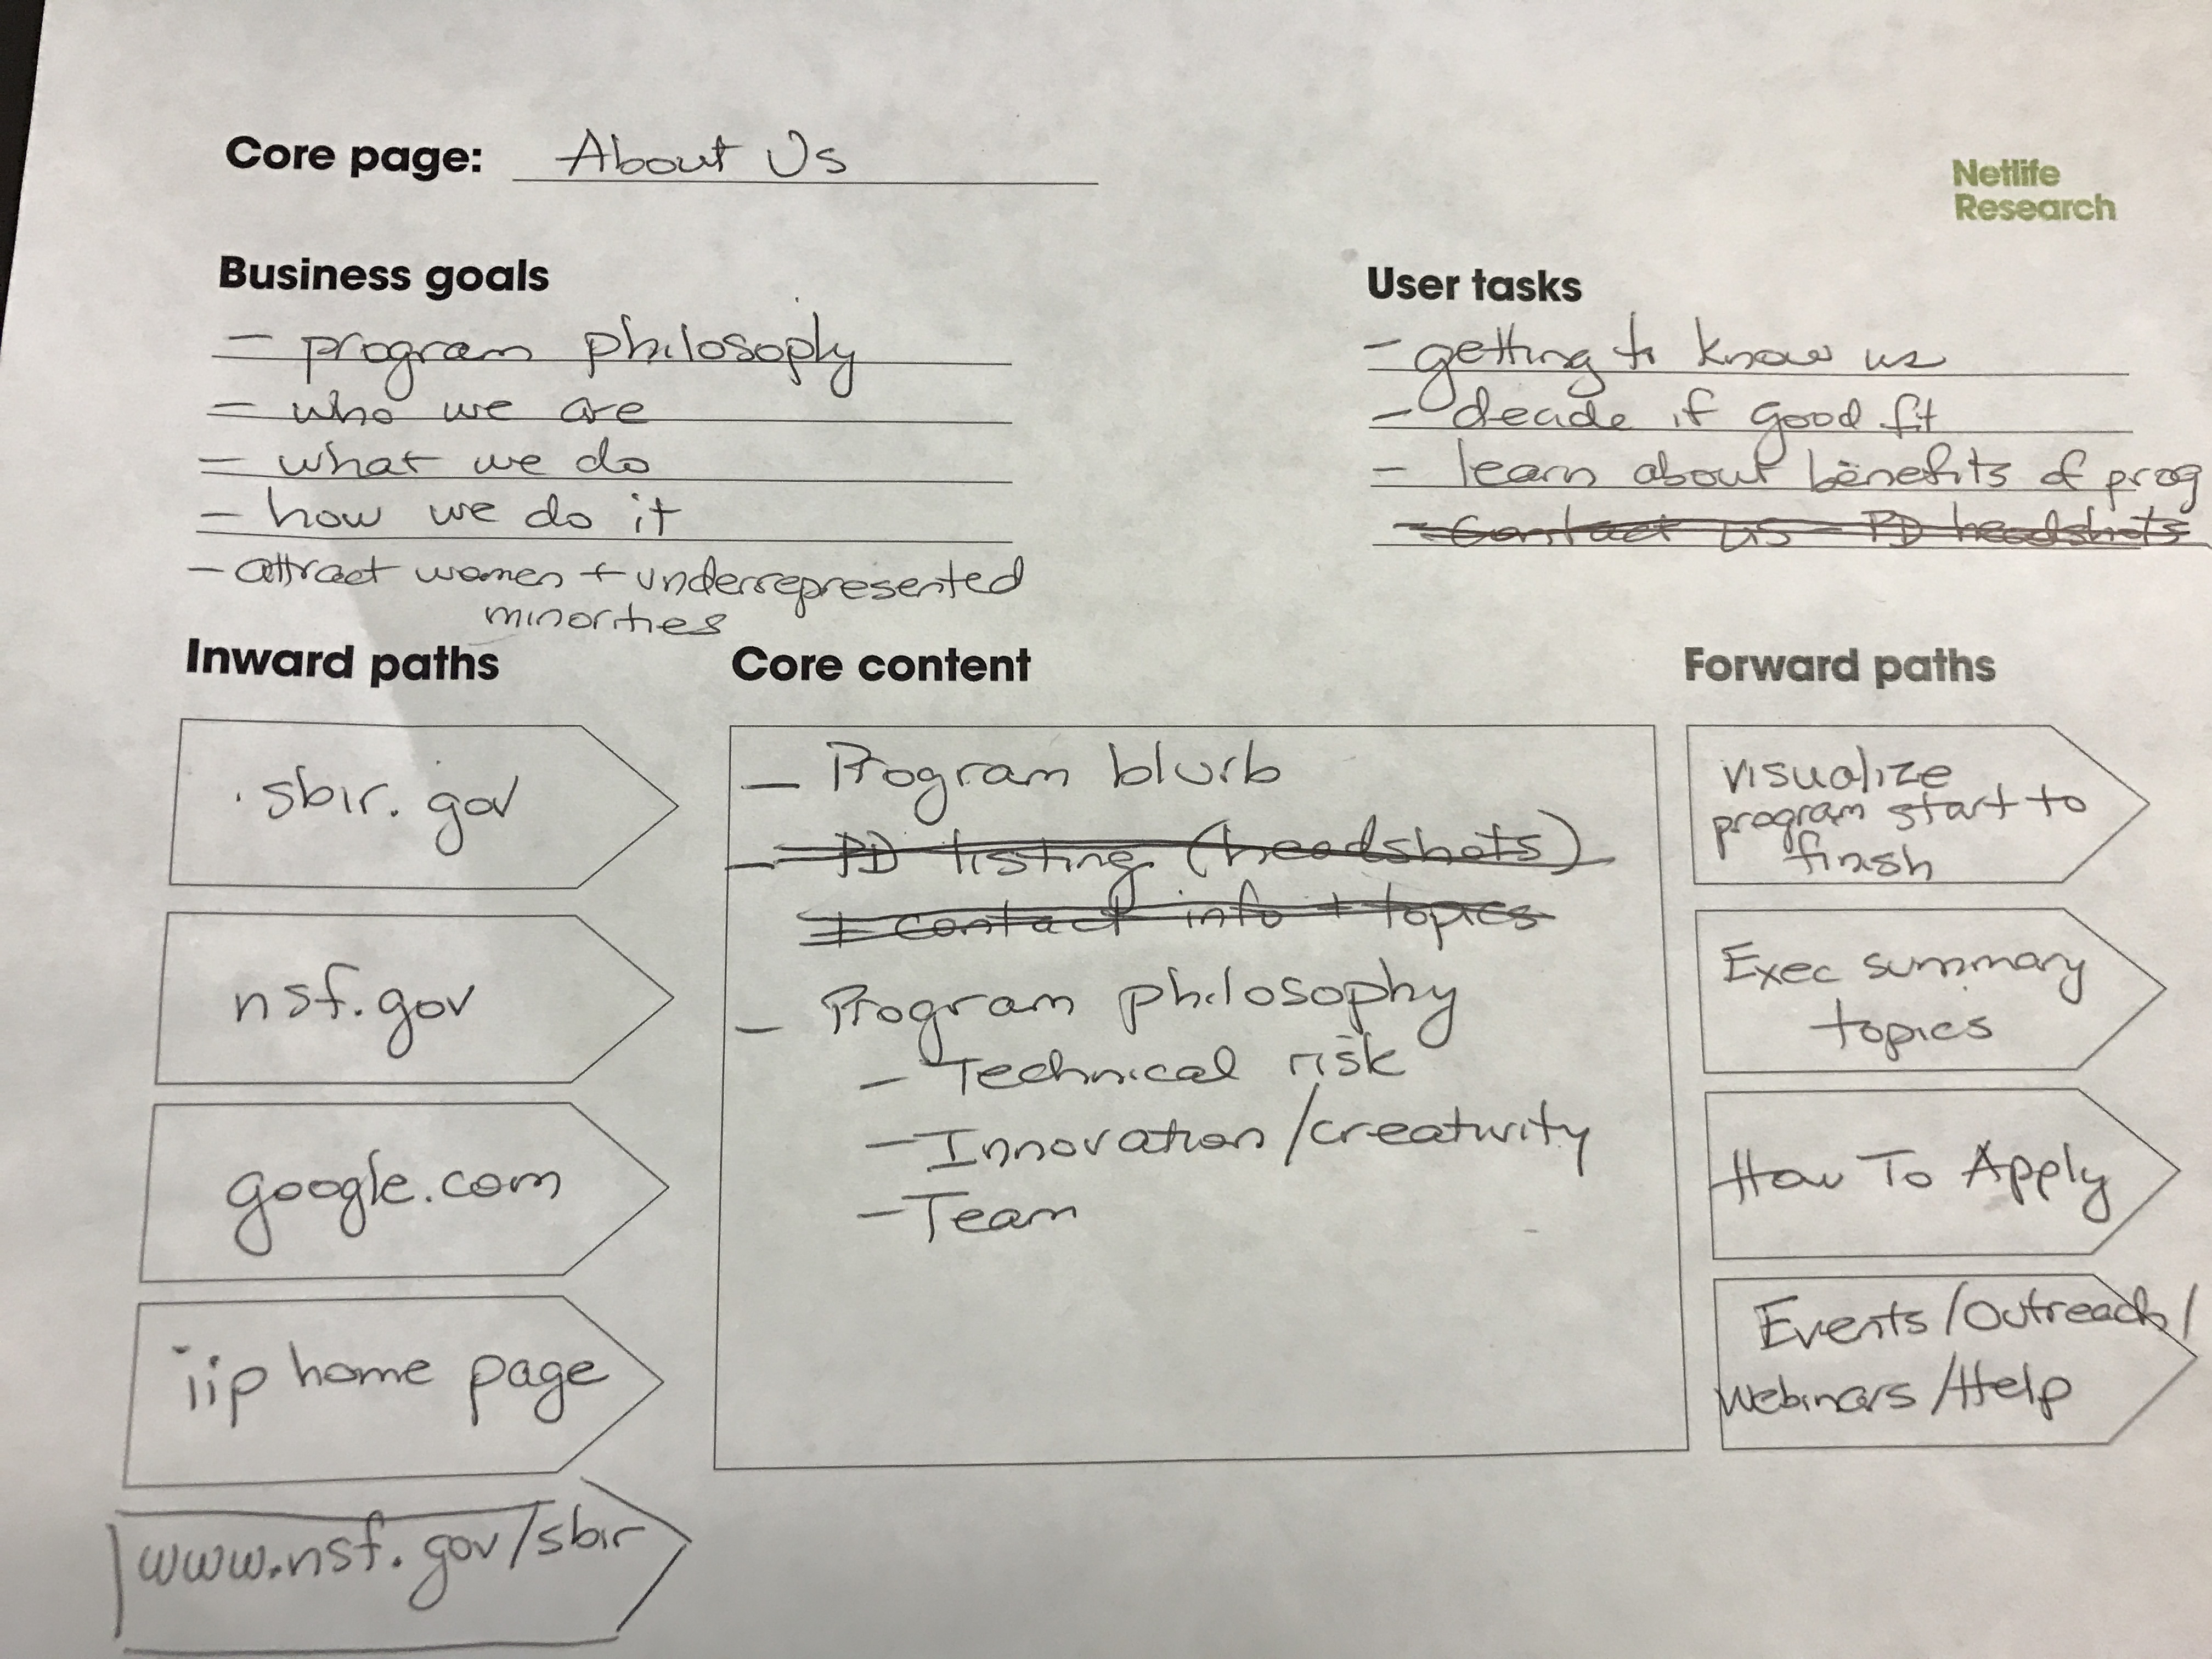 Core page: About Us
Netlife
Research
Business goals
- program philosophy
- who we are
- what we do
- how we do it
- attract women + underrepresented
minorities
User tasks
- getting to know us
- decide if good fit
- learn about benefits of prog
- Contact us - PD headshots
Inward paths
sbir.gov
nsf.gov
google.com
iip home page
www.nsf.gov/sbir
Core content
- Program blurb
- PD listing (headshots)
+ contact info + topics
- Program philosophy
- Technical risk
- Innovation/creativity
- Team
Forward paths
visualize
program start to
finish
Exec summary
topics
How To Apply
Events/Outreach/
Webinars/Help